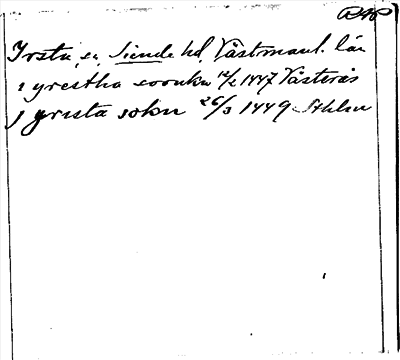 Irsta, sn, Siende hd, Västmanl. län
i yrestha soonkn 12/2 1447 Västerås
j yrista sokn 26/3 1449 Sthlm